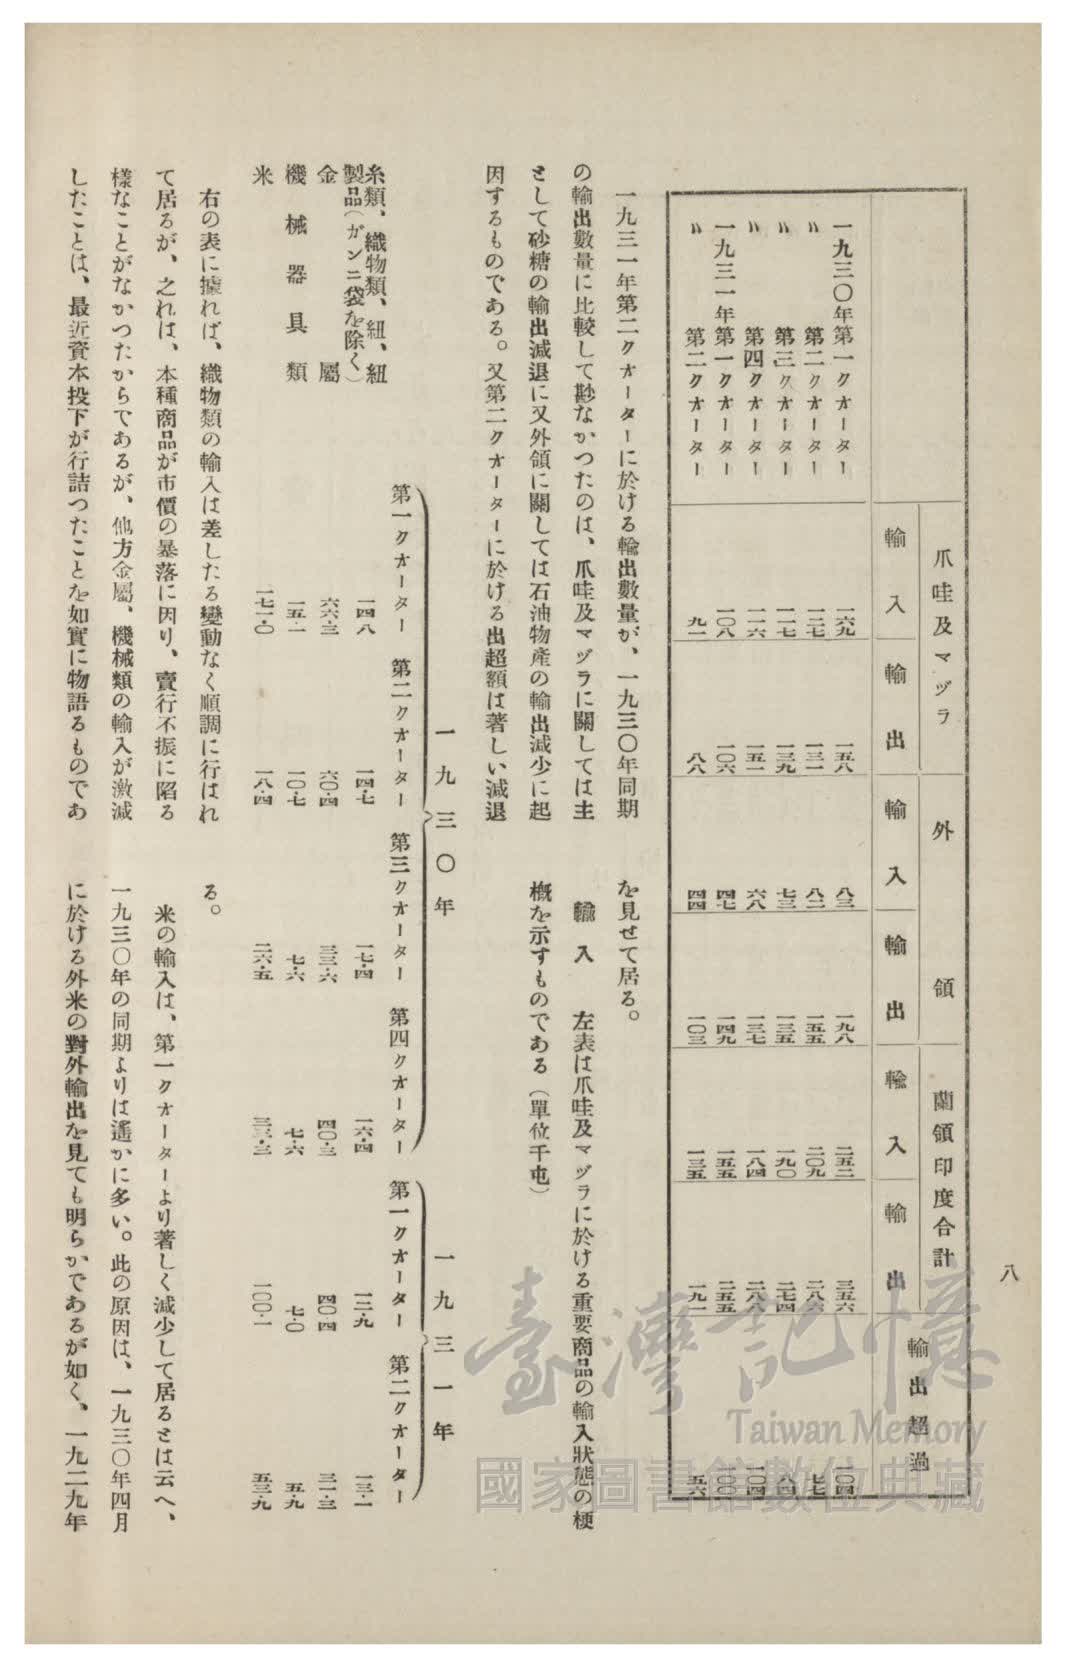 八
爪哇及マヅラ 外領 蘭領印度合計 輸出超過
輸入 輸出 輸入 輸出 輸入 輸出
一九三〇年第一クオーター 一六九 一五八 八三 一九八 二五二 三五六 一〇四
〃 第二クオーター 一二七 一三一 八二 一五五 二〇九 二八六 七七
〃 第三クオーター 一一七 一三九 七三 一三五 一九〇 二七四 八四
〃 第四クオーター 一一六 一五一 六八 一三七 一八四 二八八 一〇四
一九三一年第一クオーター 一〇八 一〇六 四七 一四九 一五五 二五五 一〇〇
〃 第二クオーター 九一 八八 四四 一〇三 一三五 一九一 五六
一九三一年第二クオーターに於ける輸出數量が、一九三〇年同期
の輸出數量に比較して尠なかつたのは、爪哇及マヅラに關しては主
として砂糖の輸出減退に又外領に關しては石油物產の輸出減少に起
因するものである。又第二クオーターに於ける出超額は著しい減退
を見せて居る。
輸入 左表は爪哇及マヅラに於ける重要商品の輸入狀態の梗
槪を示すものである（單位千屯）
一九三〇年 一九三一年
第一クオーター 第二クオーター 第三クオーター 第四クオーター 第一クオーター 第二クオーター
糸類、織物類、紐、紐
製品（ガンニ袋を除く） 一四八 一四・七 一七・四 一六・四 一二・九 一三・一
金屬 六六・三 六〇・四 三三・六 四〇・三 四〇・四 三一・三
機械器具類 一五・一 一〇・七 七・六 七・六 七・〇 五・九
米 一七一・〇 一八・四 二六・五 三三・三 一〇〇・一 五三・九
右の表に據れば、織物類の輸入は差したる變動なく順調に行はれ
て居るが、之れは、本種商品が市價の暴落に因り、賣行不振に陷る
樣なことがなかつたからであるが、他方金屬、機械類の輸入が激減
したことは、最近資本投下が行詰つたことを如實に物語るものであ
る。
米の輸入は、第一クオーターより著しく減少して居るとは云へ、
一九三〇年の同期よりは遙かに多い。此の原因は、一九三〇年四月
に於ける外米の對外輸出を見ても明らかであるが如く、一九二九年
臺灣記憶
Taiwan Memory
國家圖書館數位典藏